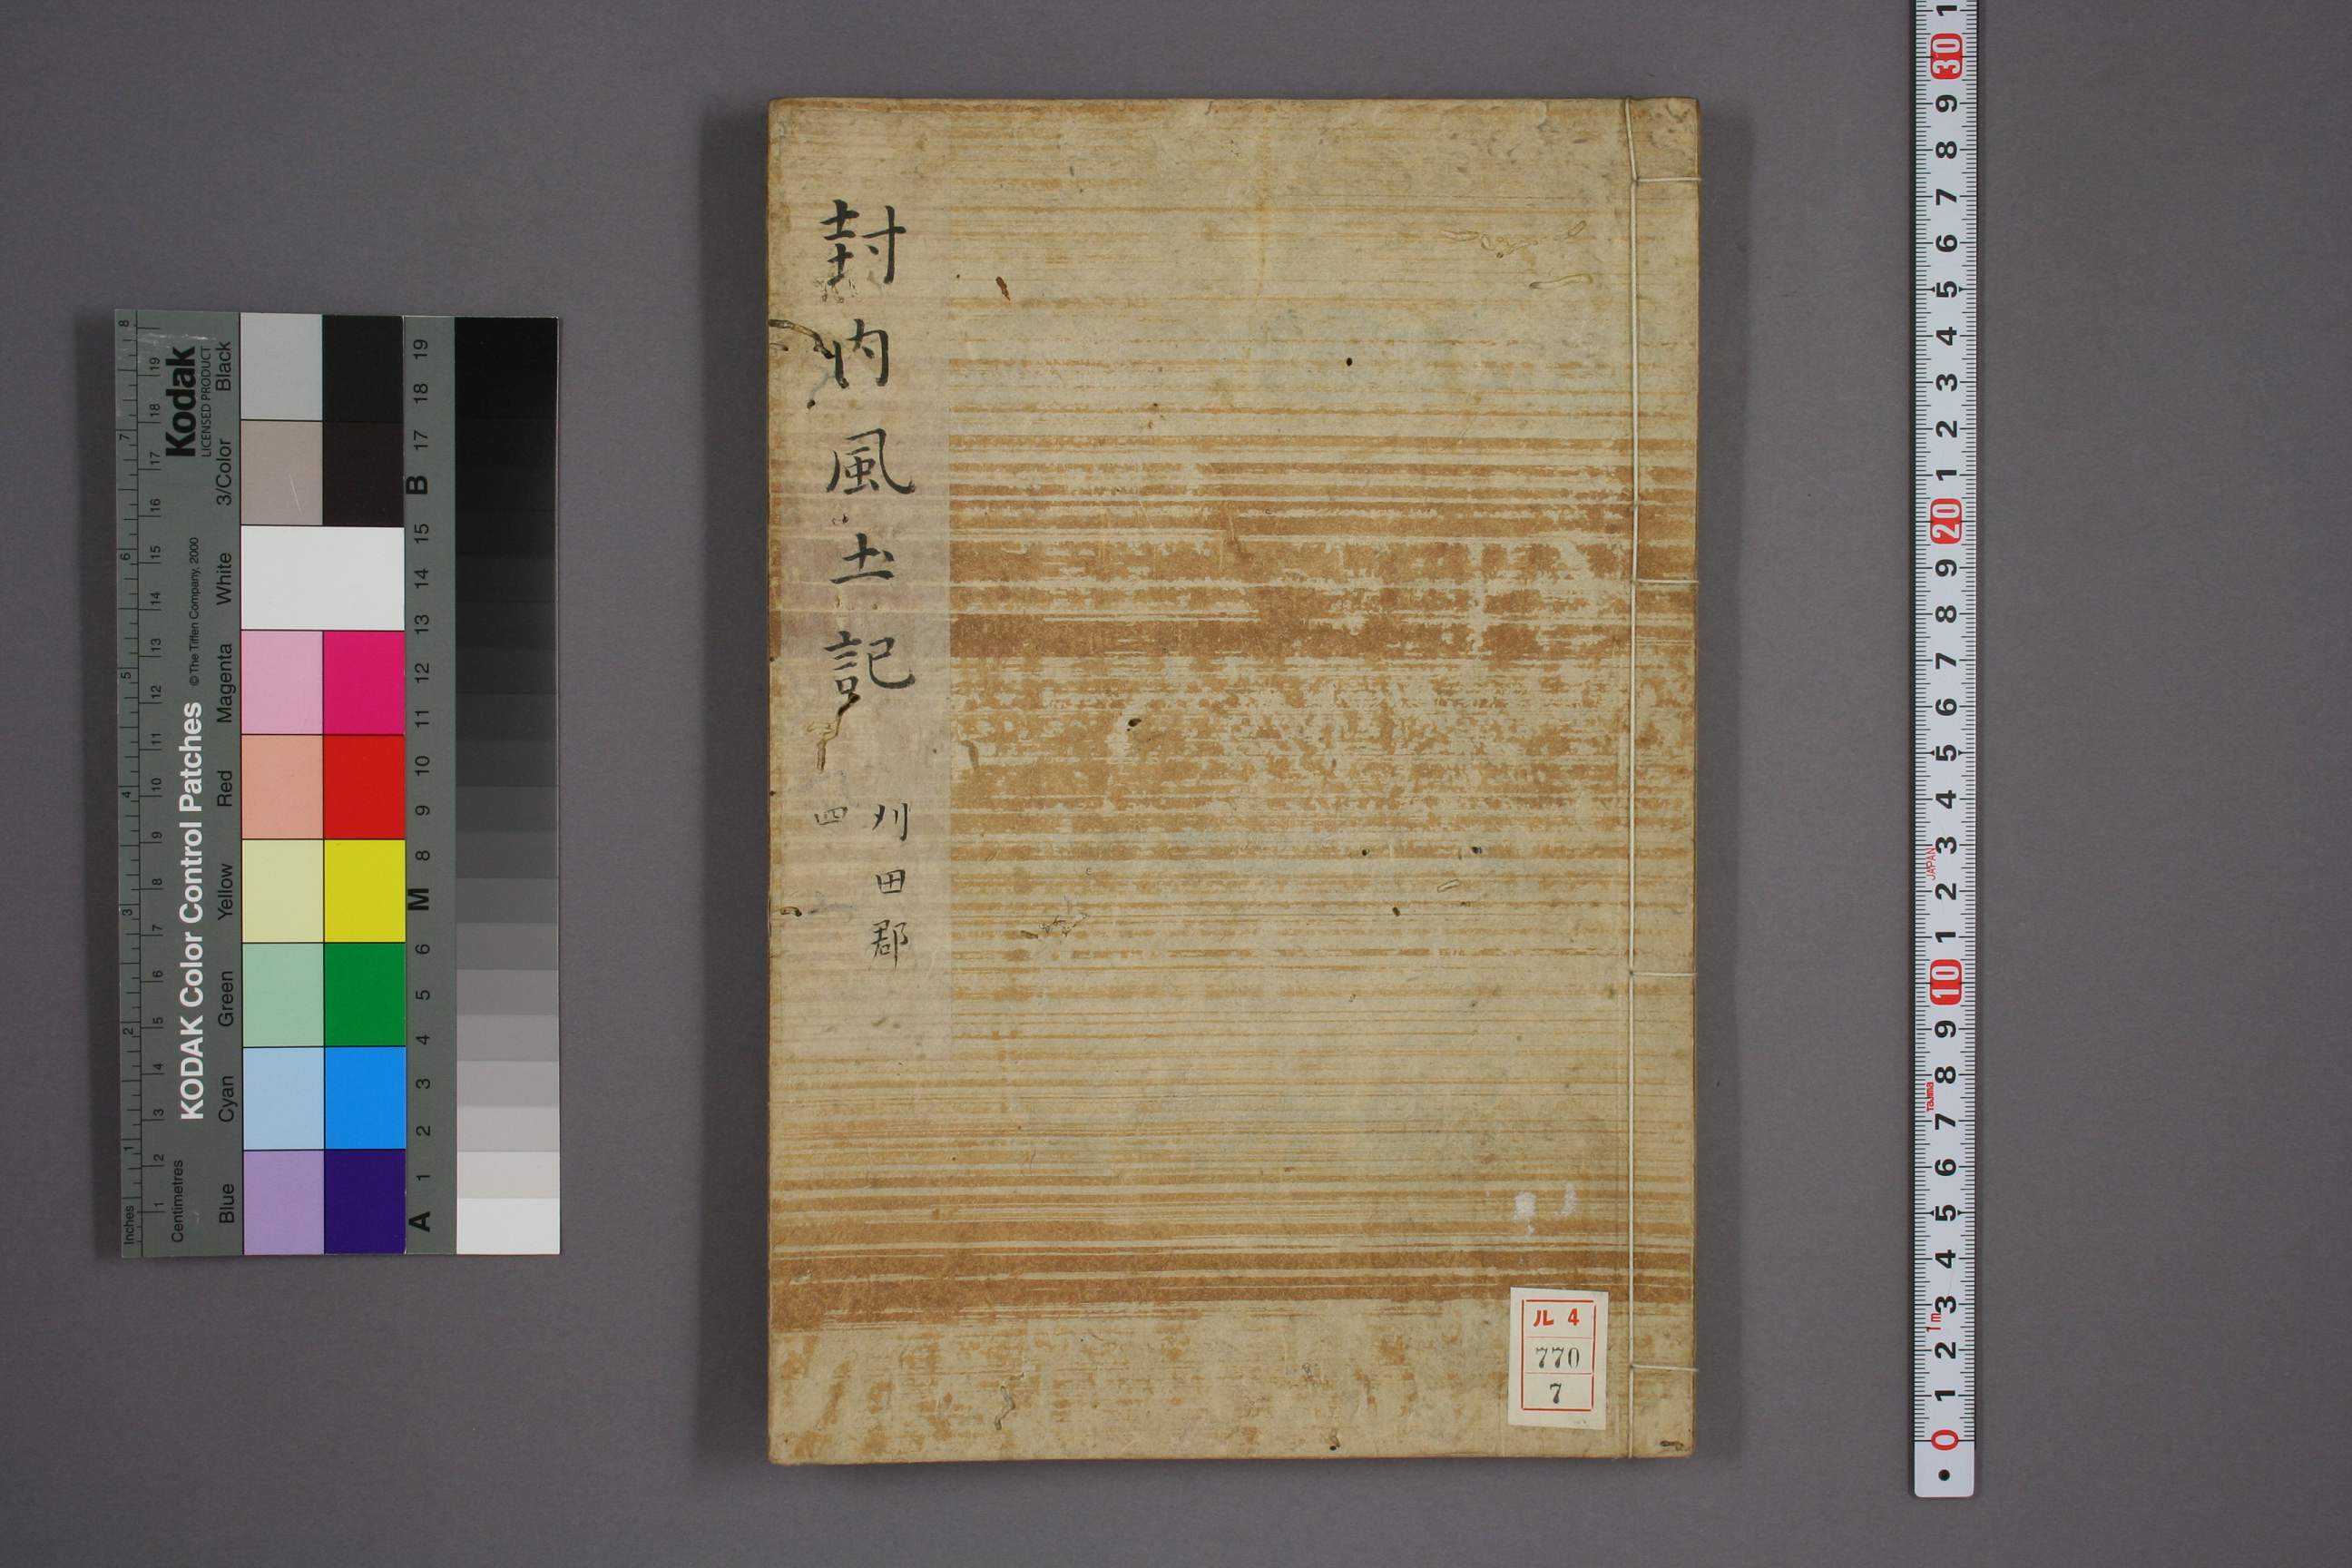 封内風土記
刈田郡
四
ル 4
770
7
KODAK Color Control Patches
©The Tiffen Company, 2000
Kodak
LICENSED PRODUCT
Inches
1 2 3 4 5 6 7 8
Centimetres
1 2 3 4 5 6 7 8 9 10 11 12 13 14 15 16 17 18 19
Blue
Cyan
Green
Yellow
Red
Magenta
White
3/Color
Black
A 1 2 3 4 5 6 M 8 9 10 11 12 13 14 15 B 17 18 19
0 1 2 3 4 5 6 7 8 9 10 1 2 3 4 5 6 7 8 9 20 1 2 3 4 5 6 7 8 9 30 1
1m
Tajima
JAPAN